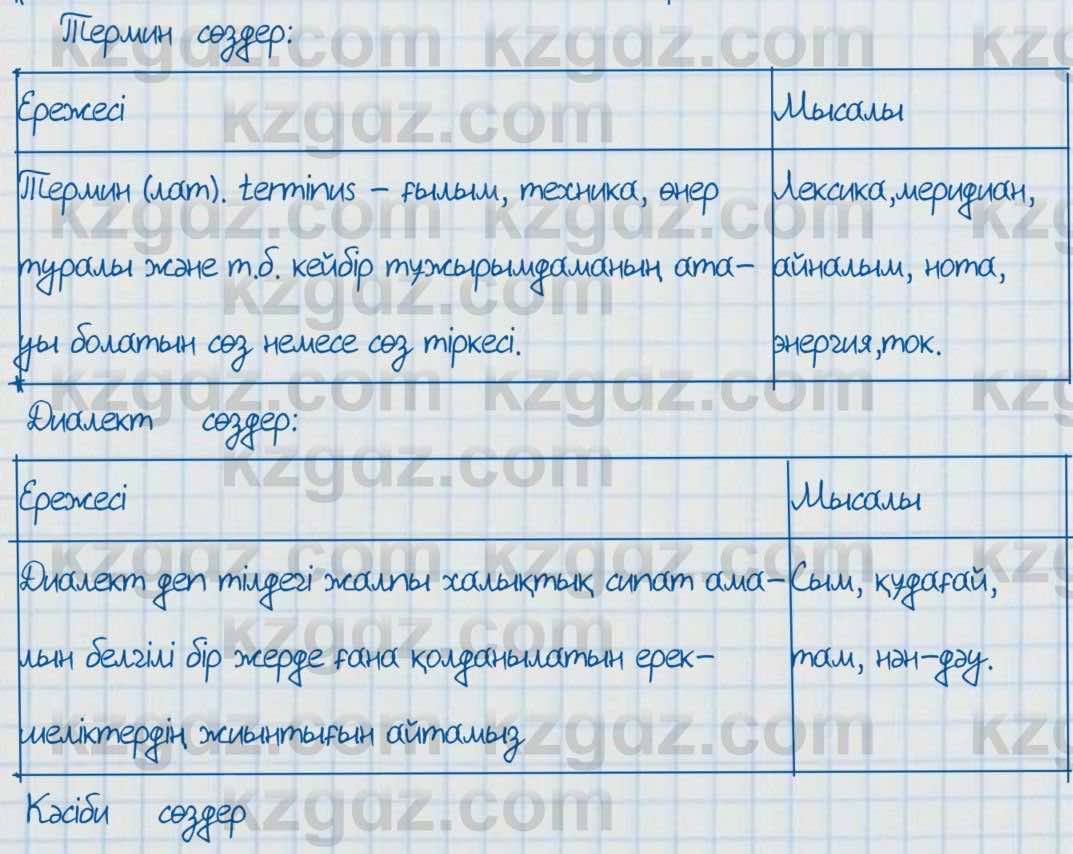 Термин сөздер:
Ережесі Мысалы
Термин (лат). terminus – ғылым, техника, өнер Лексика,меридиан,
туралы және т.б. кейбір тұжырымдаманың ата– айналым, нота,
уы болатын сөз немесе сөз тіркесі. энергия,ток.
Диалект сөздер:
Ережесі Мысалы
Диалект деп тілдегі жалпы халықтық сипат ама– Сым, құдағай,
лын белгілі бір жерде ғана қолданылатын ерек– там, нән–дәу.
шеліктердің жиынтығын айтамыз
Кәсіби сөздер
kzgdz.com